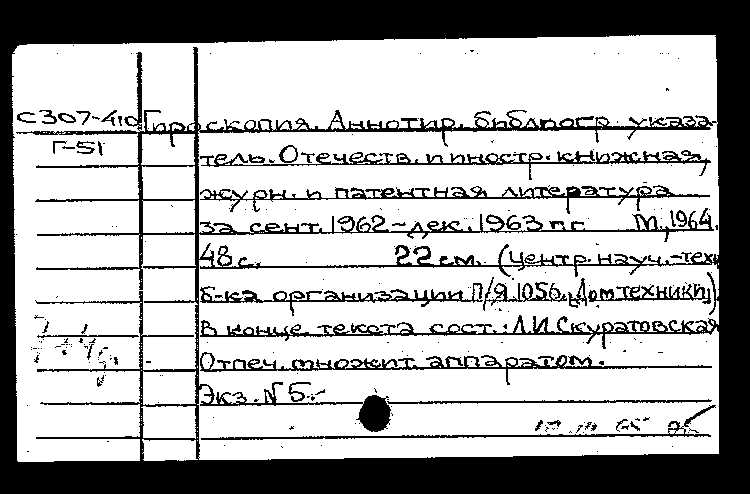 С307-410 Гироскопия. Аннотир. библиогр. указа-
Г-51 тель. Отечеств. и иностр. книжная,
журн. и патентная литература
за сент. 1962-дек. 1963 гг. М., 1964.
48 с. 22 см. (Центр. науч.-техн.
б-ка организации П/Я 1056. Дом техники)
В конце текста сост.: Л.И. Скуратовская
Отпеч. множит. аппаратом.
Экз. N 5.-